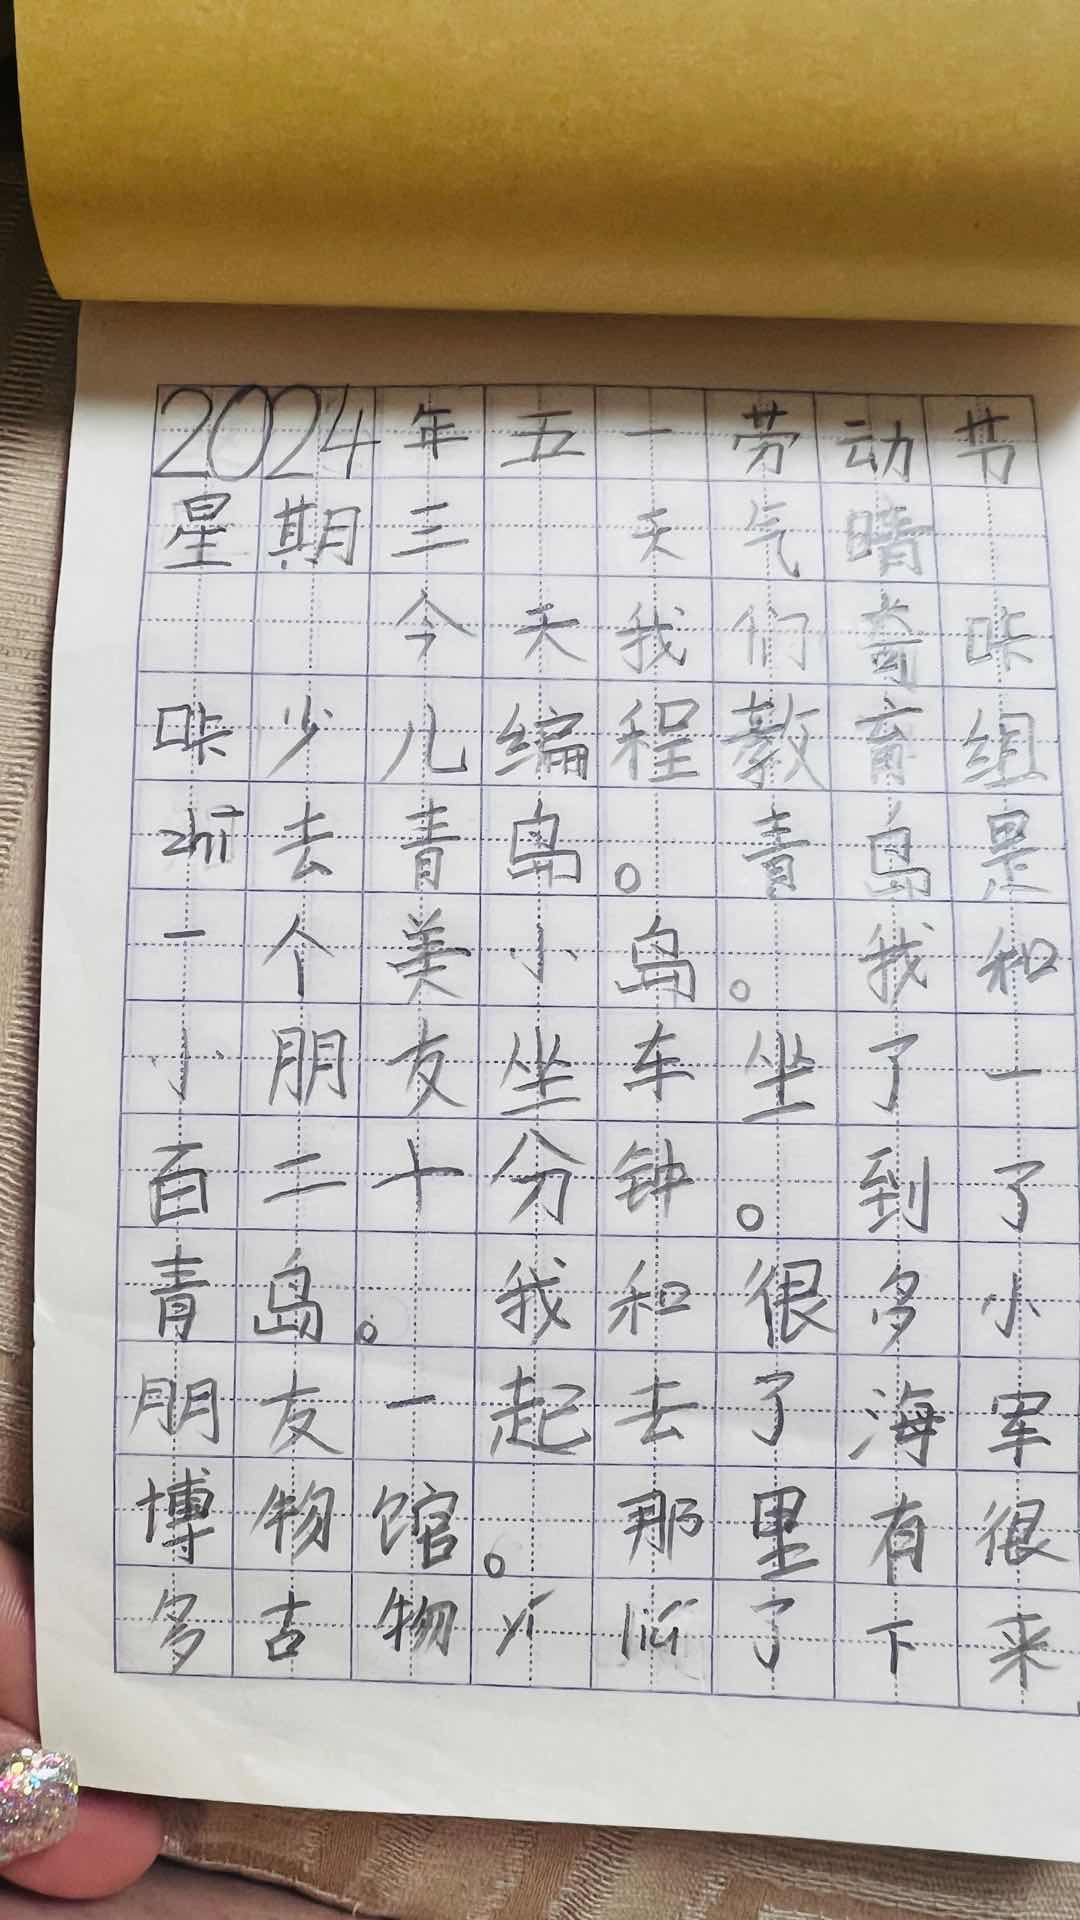 2024年五一劳动节
星期三 天气晴
今天我们奇咔
咔少儿编程教育组
zhī去青岛。青岛是
一个美小岛。我和
小朋友坐车坐了一
百二十分钟。到了
青岛。我和很多小
朋友一起去了海军
博物馆。那里有很
多古物yí liú了下来